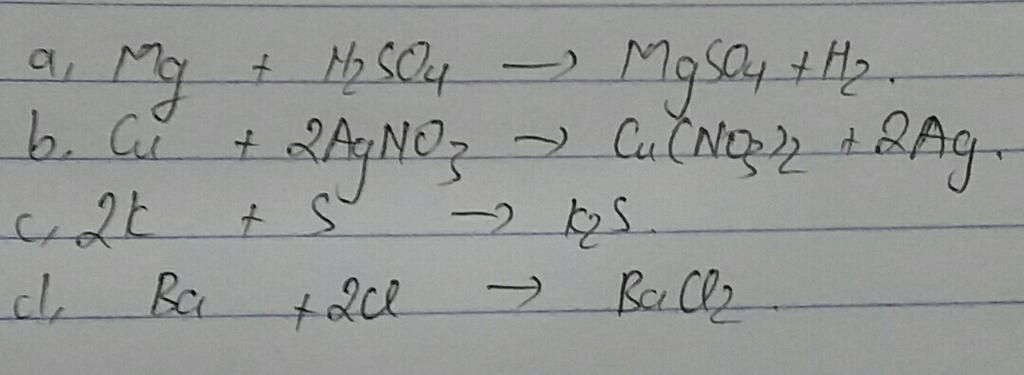 a, Mg + H2SO4 → MgSO4 + H2.
b. Cu + 2AgNO3 → Cu(NO3)2 + 2Ag.
c, 2K + S → K2S.
d, Ba + 2Cl → BaCl2.